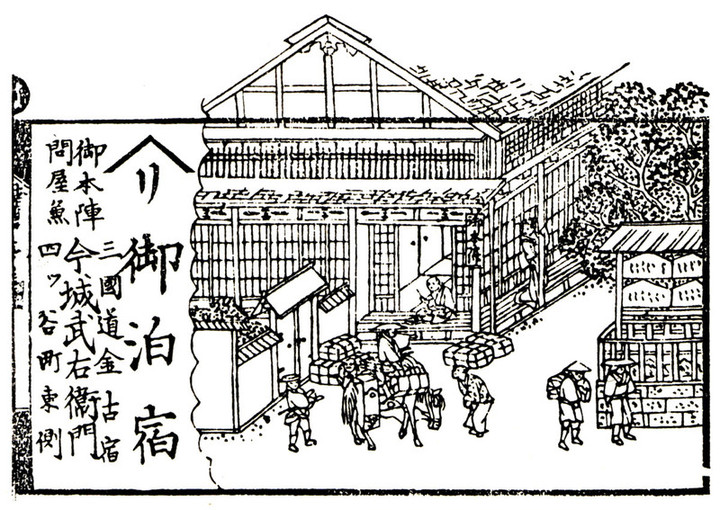 リ
御泊宿
三國道金古宿
今城武右衛門
御本陣
問屋魚四ッ谷町東側
御本陣